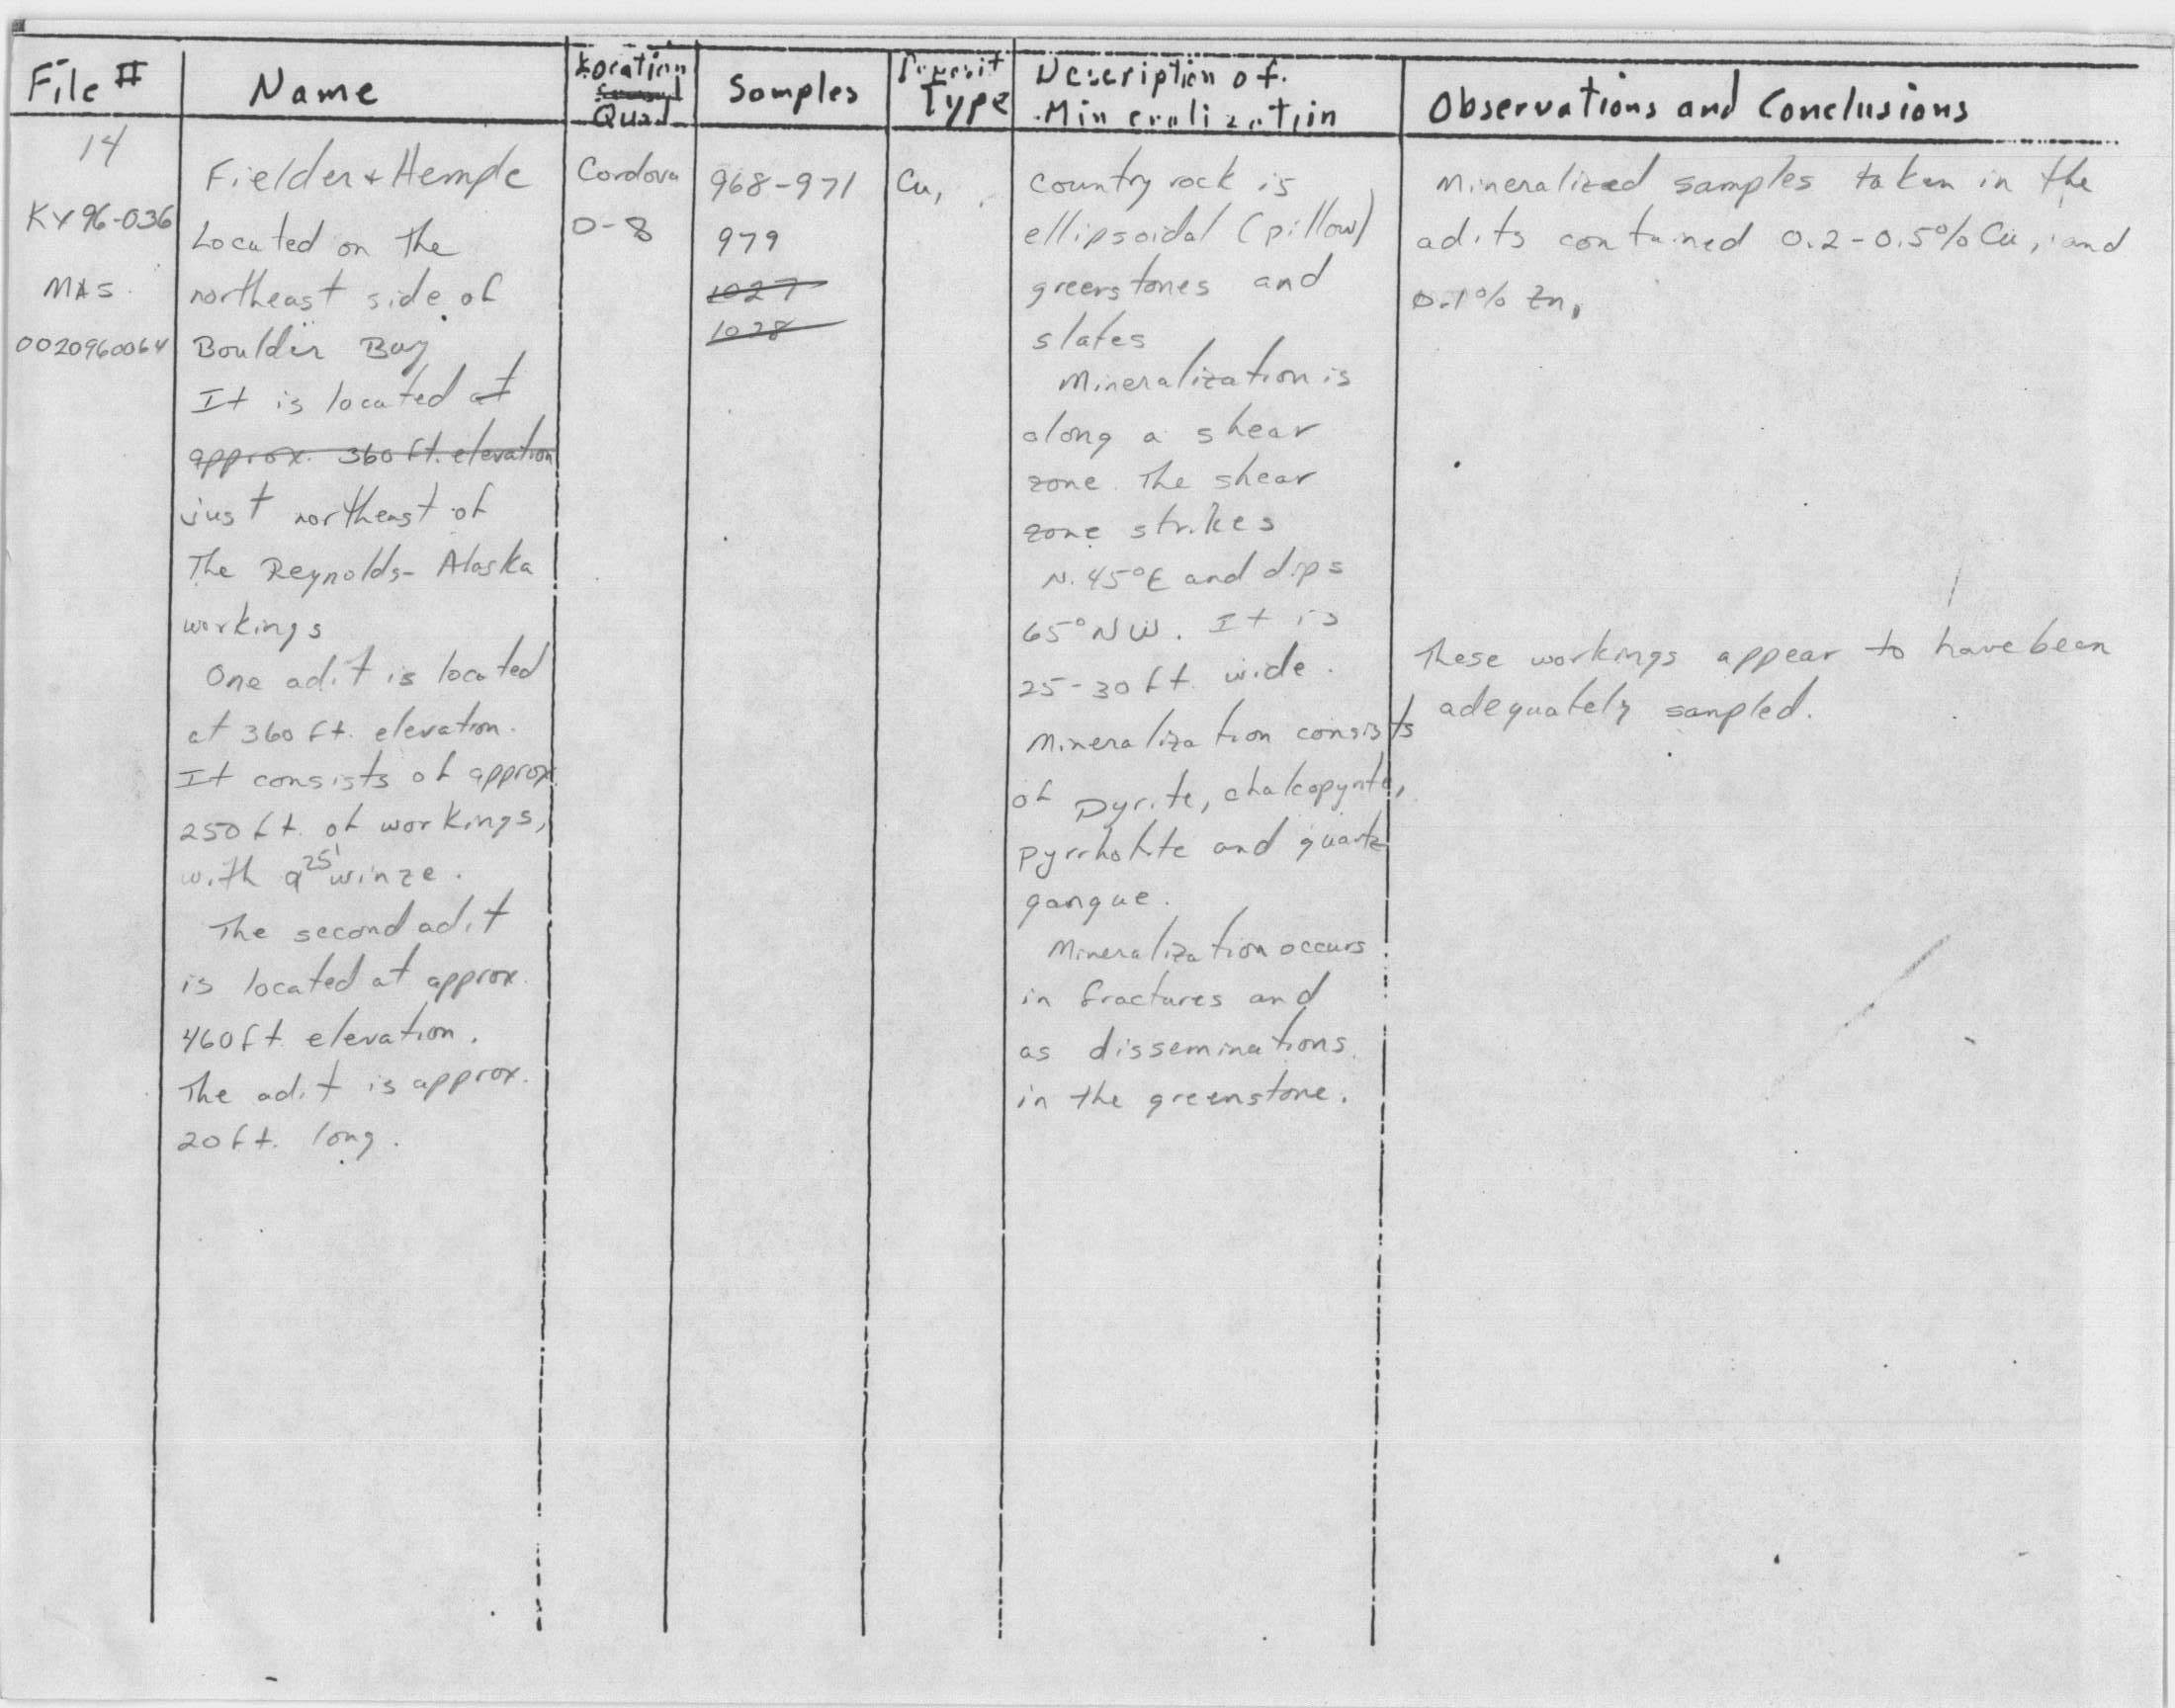 File #
Name
Location
Quad
Samples
Deposit
Type
Description of
Mineralization
Observations and Conclusions
14
KX96-036
MAS
0020960064
Fielder + Hemple
Located on the
northeast side of
Boulder Bay
It is located at
approx. 360 ft. elevation
just northeast of
The Reynolds-Alaska
workings
One adit is located
at 360 ft. elevation.
It consists of approx
250 ft. of workings,
with a 25' winze.
The second adit
is located at approx.
460 ft elevation.
The adit is approx.
20 ft. long.
Cordova
D-8
968-971
979
1027
1028
Cu,
country rock is
ellipsoidal (pillow)
greenstones and
slates
Mineralization is
along a shear
zone. The shear
zone strikes
N. 45°E and dips
65°NW. It is
25-30 ft. wide.
Mineralization consists
of pyrite, chalcopyrite,
pyrrhotite and quartz
gangue.
Mineralization occurs
in fractures and
as disseminations
in the greenstone.
Mineralized samples taken in the
adits contained 0.2-0.5% Cu, and
0.1% Zn,
These workings appear to have been
adequately sampled.